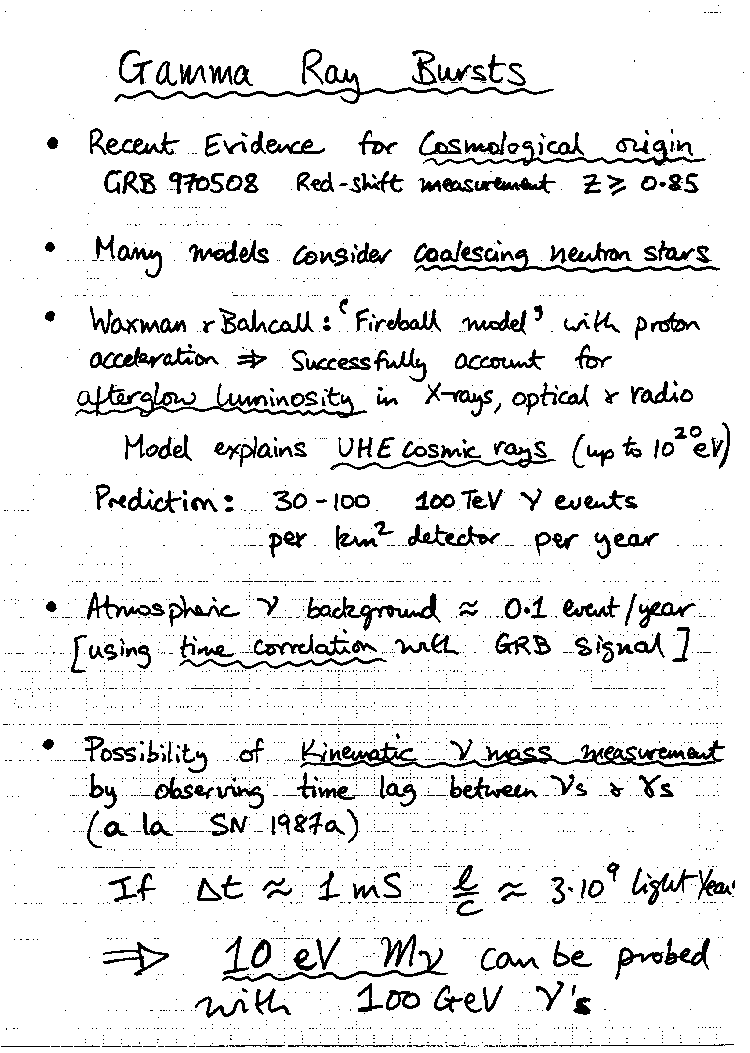 Gamma Ray Bursts
• Recent Evidence for Cosmological origin
GRB 970508 Red-shift measurement Z ≥ 0.85
• Many models consider coalescing neutron stars
• Waxman & Bahcall: 'Fireball model' with proton
acceleration ⇒ Successfully account for
afterglow luminosity in X-rays, optical & radio
Model explains UHE cosmic rays (up to 10²⁰eV)
Prediction: 30-100 100 TeV ν events
per km² detector per year
• Atmospheric ν background ≈ 0.1 event/year
[using time correlation with GRB signal]
• Possibility of Kinematic ν mass measurement
by observing time lag between νs & γs
(a la SN 1987a)
If Δt ≈ 1 mS ℓ/c ≈ 3·10⁹ light years
⇒ 10 eV Mν can be probed
with 100 GeV ν's